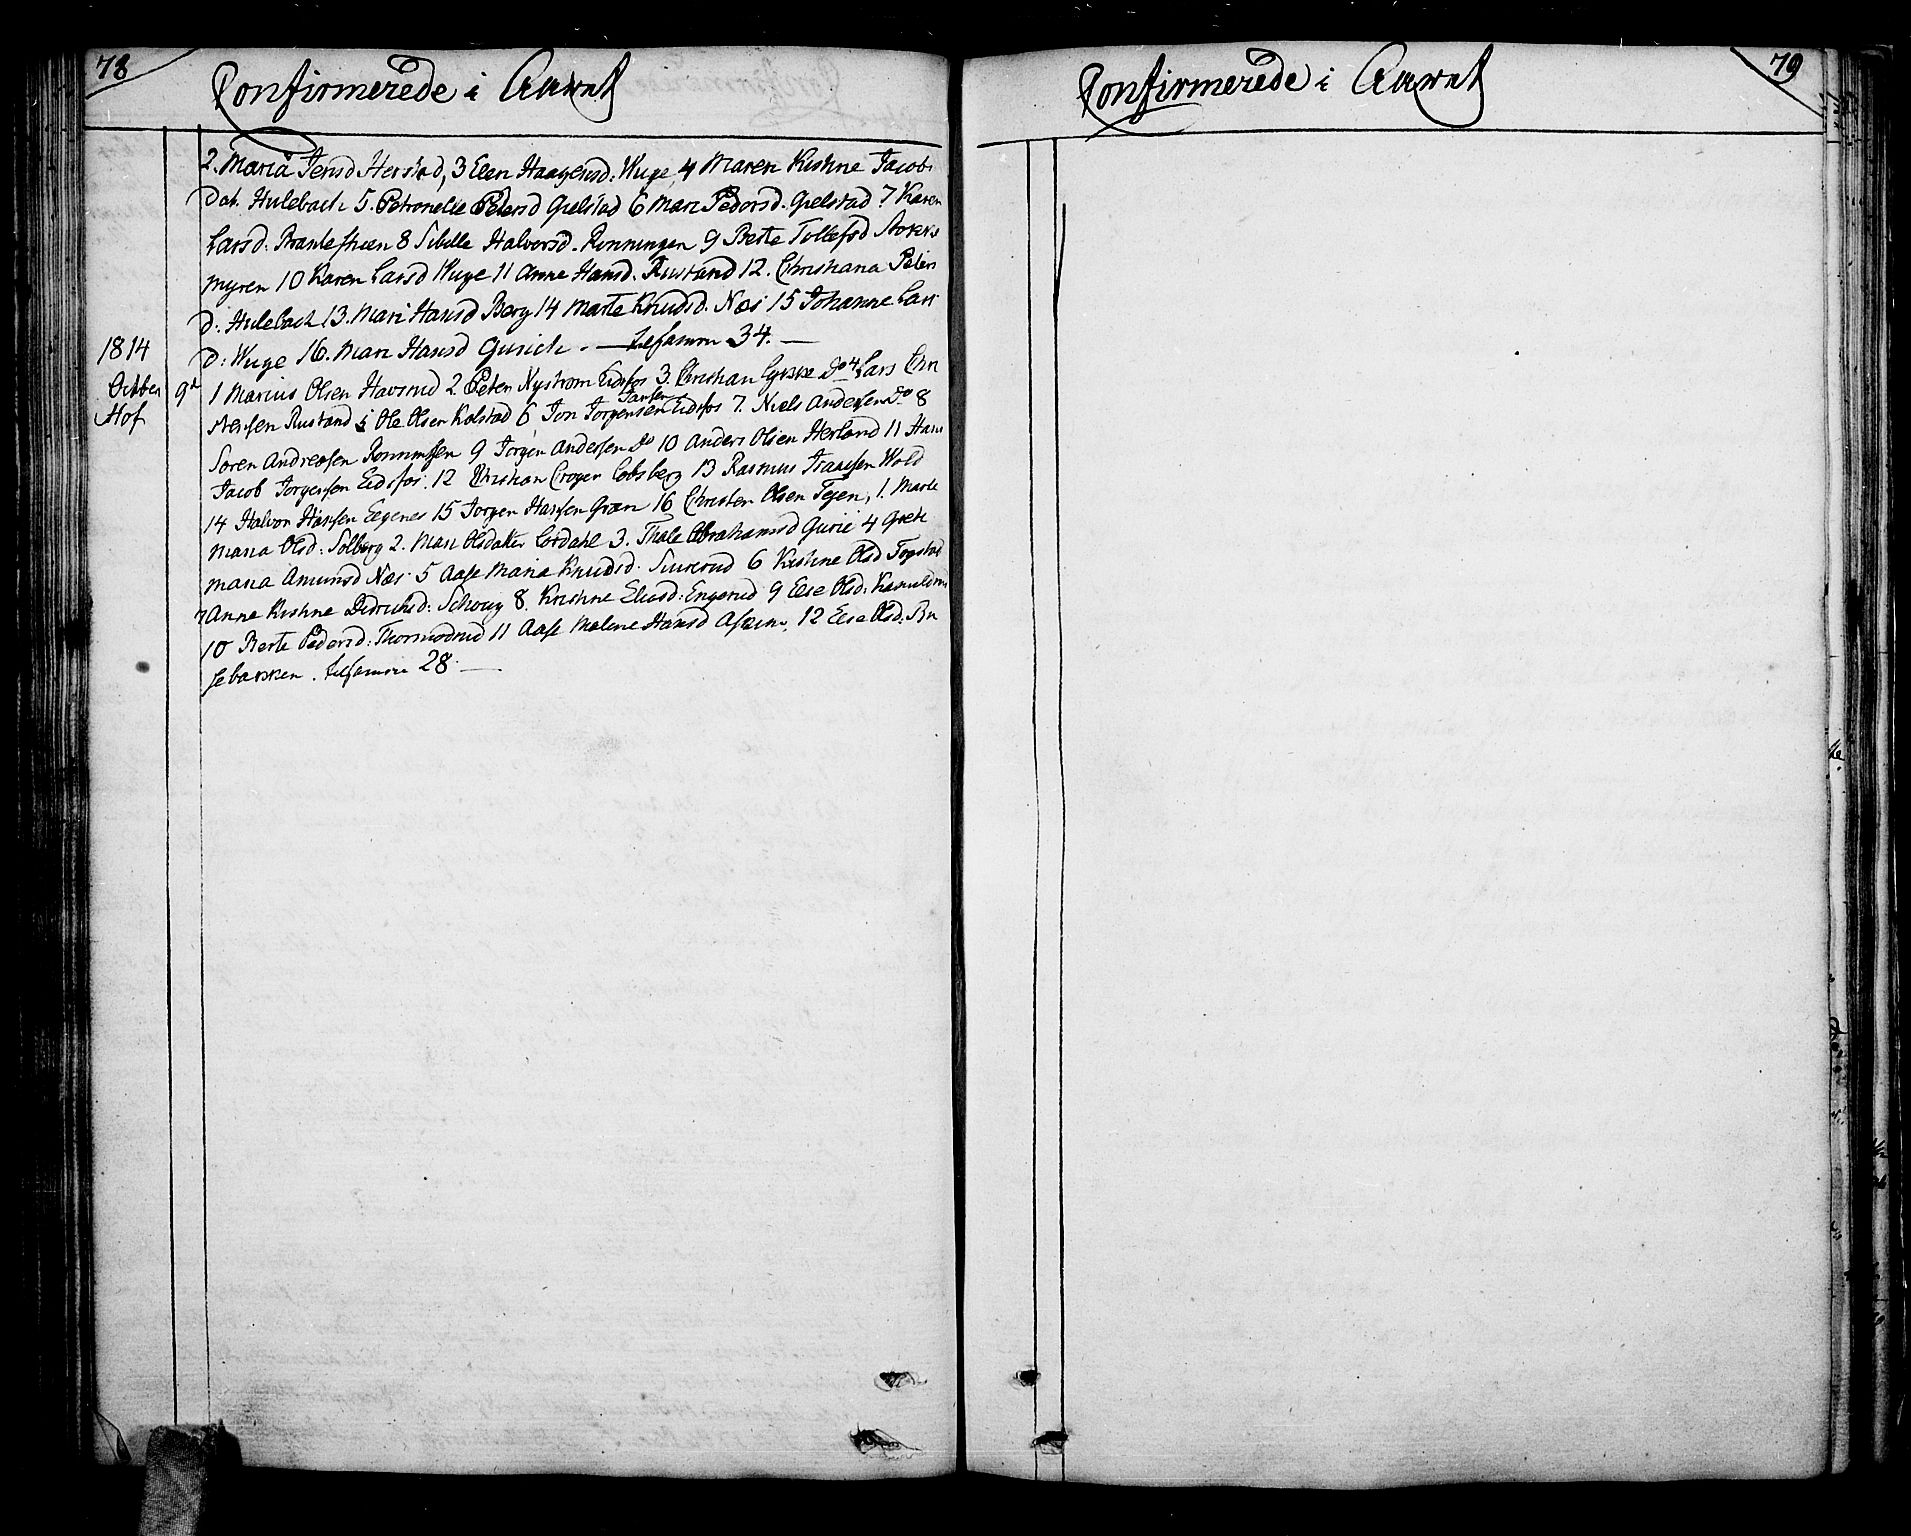 78
Confirmerede i Aaret
2. Maria Jensd Herstad, 3 Elen Haagensd: Wuge, 4 Maren Kistine Jacobs
Dat. Hulebach 5. Petronelle Petersd Gielstad 6 Mari Pedersd. Gielstad 7 Karen
Larsd. 8 Sibille Halvorsd. Ronningen 9 Berte Tollefsd
myren 10 Karen Larsd Wuge 11 Anne Hansd. Rustand 12. Christiana Peters
D: Hulebach 13. Mari Hansd Berg 14 Marte Knudsd. Næs 15 Johanne Lars
D: Wuge 16. Mari Hansd Gurich. — tilsamen 34. —
1814
Octber 9d
Hof
1 Marius Olsen Havsrud 2. Peter Nystrom Eidsfos 3. Christian Lykke Do 4 Lars Chri
stensen Rustand 5 Ole Olsen Kolstad 6 Jon Jorgensen Jansen Eidsfos 7. Niels Andersen Do 8
Soren Andreasen 9 Jorgen Andersen Do 10 Anders Olsen Herland 11 Hans
Jacob Jorgensen Eidsfos. 12 Christian Croger Cobsberg 13 Rasmus Wold
14 Halvor Hansen Eegenes 15 Jorgen Hansen Gran 16 Christen Olsen Tejen, 1. Marte
Maria Olsd: Solberg 2. Mari Olsdatter 3. Thale Abrahamsd Gurie 4 Grete
Maria Amunsd Næs 5 Aase Maria Knudsd. 6 Kistine Olsd Togstad
7 Anne Kistine Didrichsd: Schoug 8. Kristine Eliasd: Engerud 9 Else Olsd:
10 Berte Pedersd: Thormodrud 11 Aase Malene Hansd 12 Else Olsd. Bu
sebakken. tilsamen 28. —
79
Confirmerede i Aaret